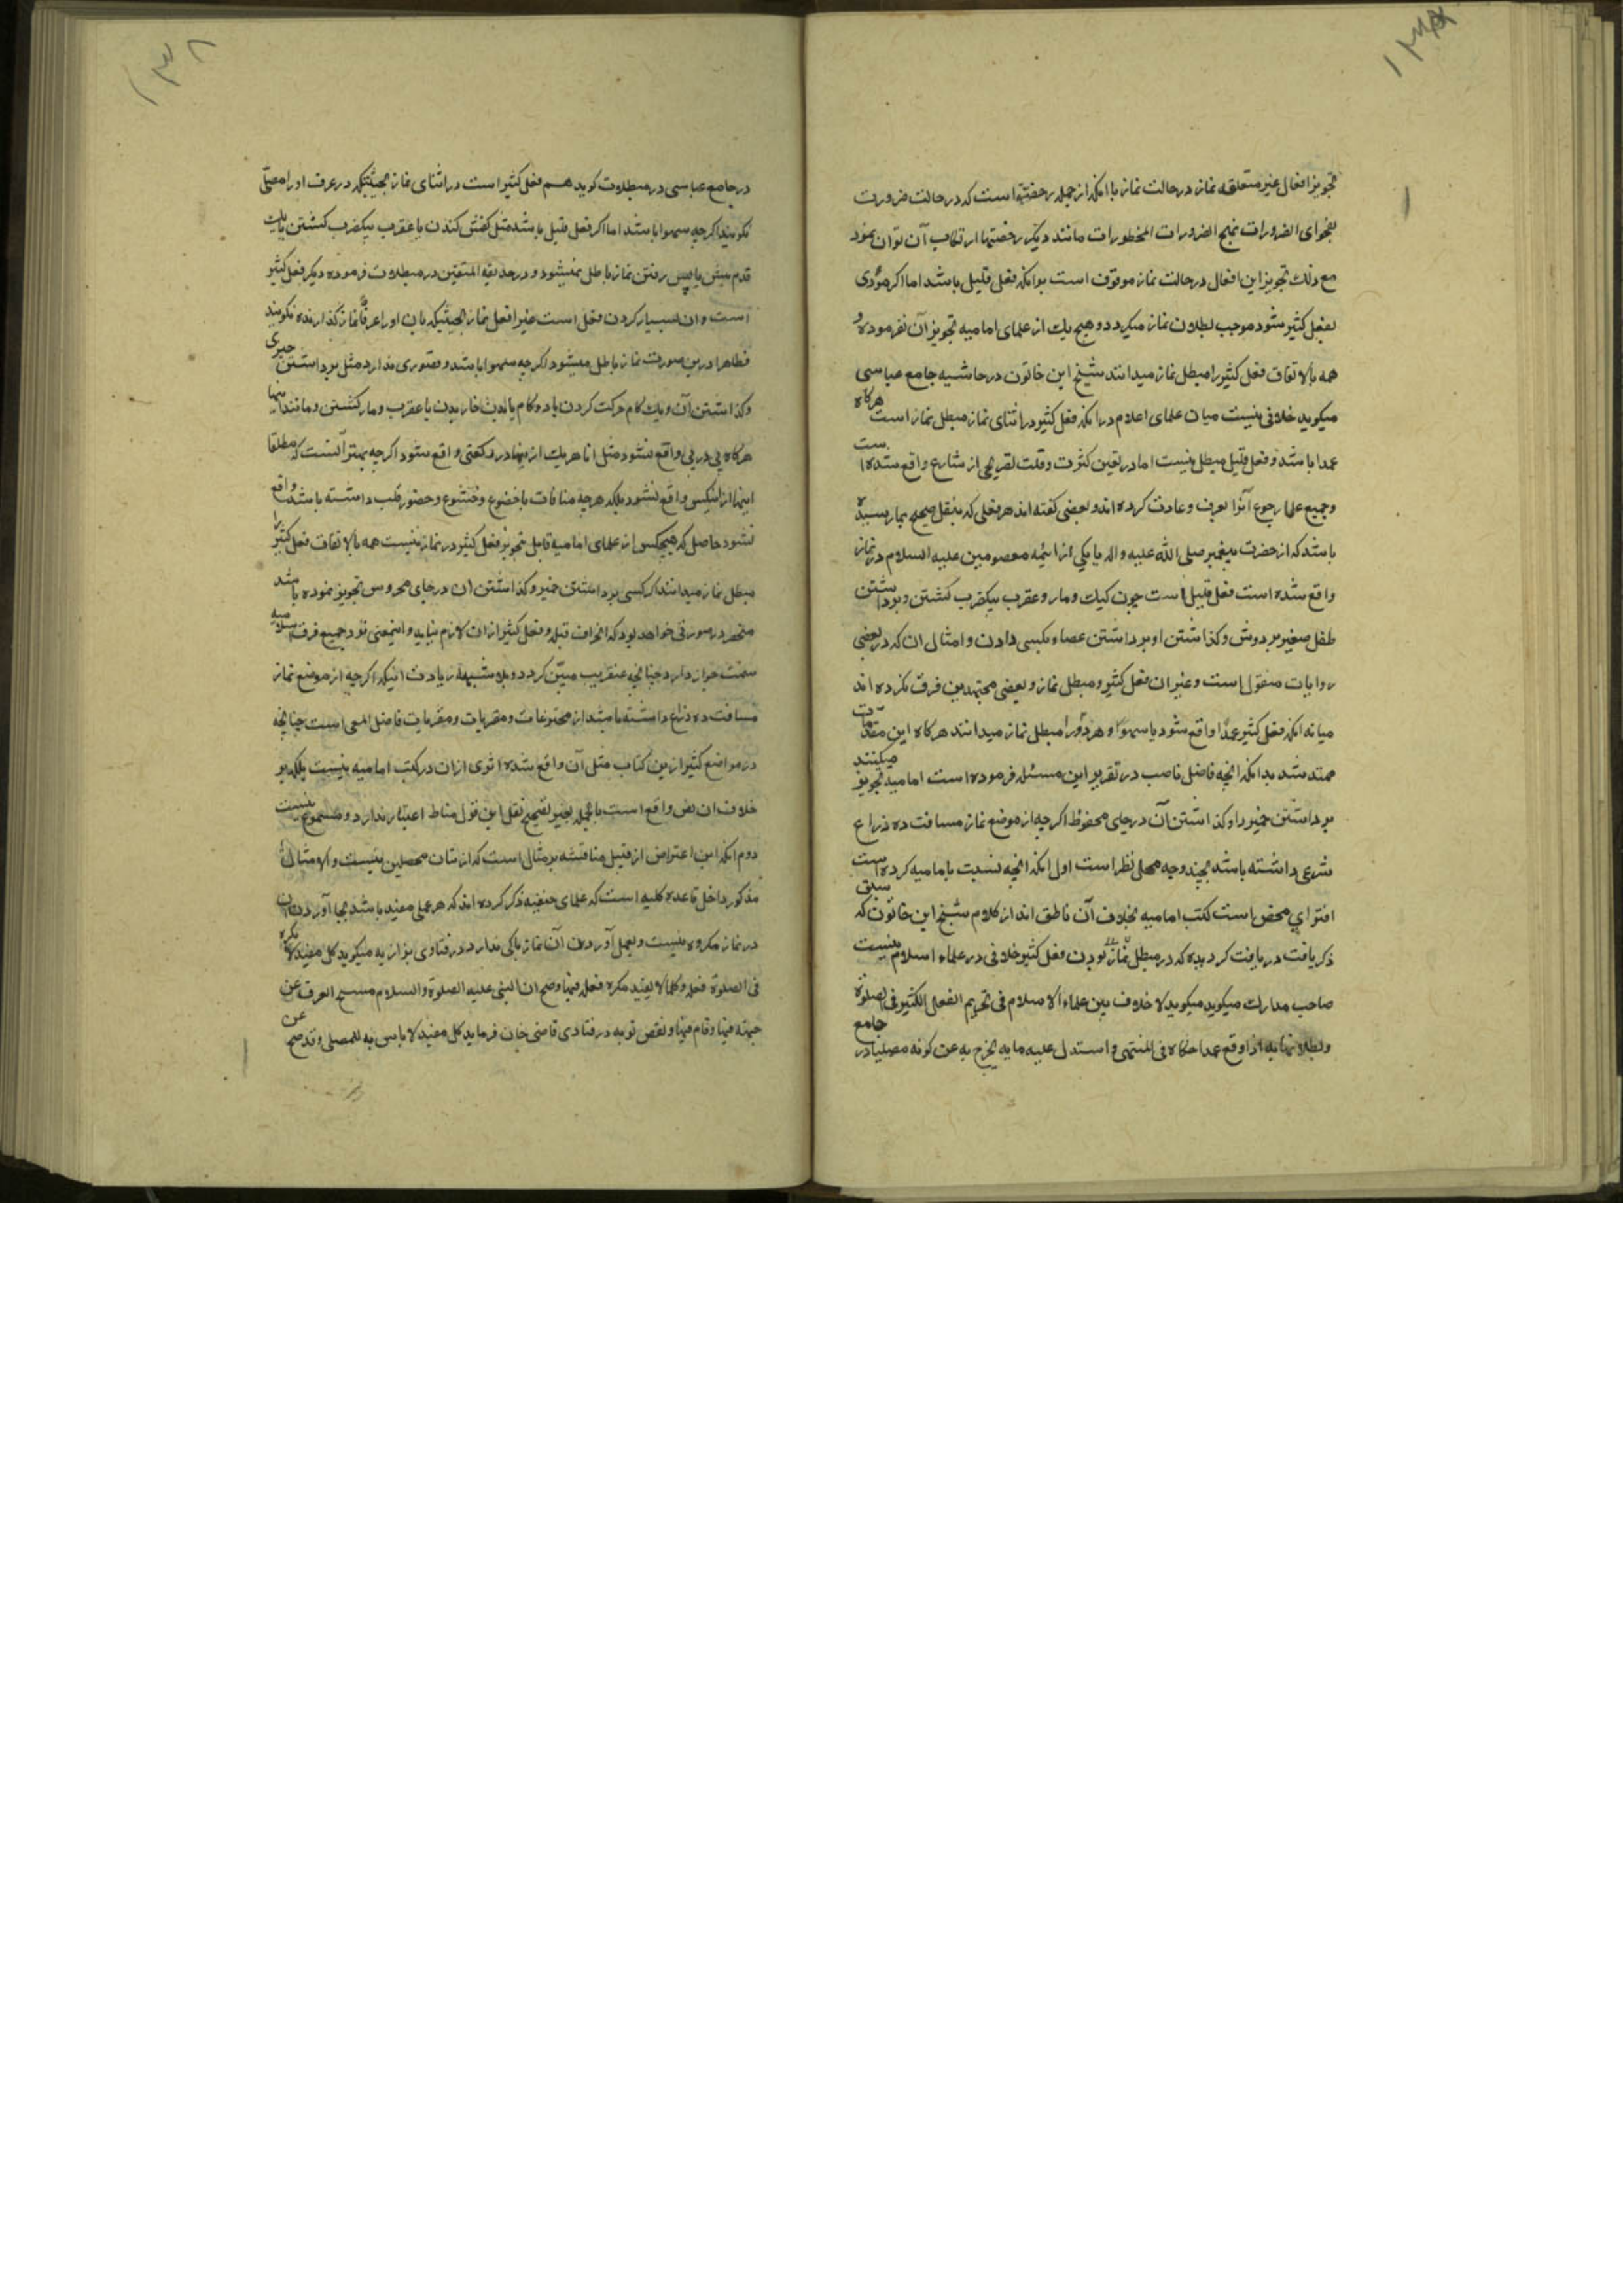 تجویز افعال غیر متعلقه نماز در حالت نماز با آنکه از جمله رخصتها است که در حالت ضرورت
بفحوای الضرورات تبیح المحظورات مانند دیگر رخصتها ارتکاب آن توان نمود
مع ذلک تجویز این افعال در حالت نماز موقوف است برانکه فعل قلیل باشد اما اگر مؤدی
بفعل کثیر شود موجب بطلان نماز میگردد و هیچ یک از علمای امامیه تجویز آن نفرموده و
همه بالاتفاق فعل کثیر را مبطل نماز میدانند شیخ ابن خاتون در حاشیه جامع عباسی
میگوید خلافی نیست میان علمای اعلام در انکه فعل کثیر در اثنای نماز مبطل نماز است هرگاه
عمدا باشد و فعل قلیل مبطل نیست اما در تعین کثرت و قلت تصریحی از شارع واقع نشده است
و جمیع علما رجوع آنرا بعرف و عادت کرده اند و بعضی گفته اند هر فعلی که بنقل صحیح بما رسیده
باشد که از حضرت پیغمبر صلی الله علیه و اله یا یکی از ائمه معصومین علیه السلام در نماز
واقع شده است فعل قلیل است چون کیک و مار و عقرب بیکضرب کشتن و برداشتن
طفل صغیر بر دوش و گذاشتن او و برداشتن عصا و بکسی دادن و امثال ان که در بعضی
روایات منقول است و غیر ان فعل کثیر و مبطل نماز و بعضی مجتهدین فرق نکرده اند
میانه انکه فعل کثیر عمدا واقع شود یا سهوا و هر دو را مبطل نماز میدانند هرگاه این مقدمات
ممتد شد بدانکه انچه فاضل ناصب در تقریر این مسئله فرموده است امامیه تجویز میکنند
برداشتن خمیر را و گذاشتن آن در جای محفوظ اگرچه از موضع نماز مسافت ده ذراع
شرعی داشته باشد بچند وجه محل نظر است اول انکه انچه نسبت بامامیه کرده است
افترای محض است کتب امامیه بخلاف آن ناطق اند از کلام شیخ ابن خاتون که سبق
ذکر یافت دریافت گردیده که در مبطل نماز بودن فعل کثیر خلافی در علماء اسلام نیست
صاحب مدارک میگوید میگوید لا خلاف بین علماء الاسلام فی تحریم الفعل الکثیر فی الصلوة
و بطلانها به اذا وقع عمدا حکاه فی المنتهی و استدل علیه مایه یخرج به عن کونه مصلیا در جامع
در جامع عباسی در مبطلات گوید هم فعل کثیر است در اثنای نماز بحیثیتیکه در عرف او را مصلی
نگویند اگرچه سهوا باشد اما اگر فعل قلیل باشد مثل کفش کندن یا عقرب بیکضرب کشتن یا یک
قدم پیش یا پس رفتن نماز باطل نمیشود و در حدیقه المتقین در مبطلات فرموده دیگر فعل کثیر
است و ان بسیار کردن فعل است غیر افعل نماز بحیثیتیکه بان او را عرفا نماز گذارنده نگویند
فظاهرا درین صورت نماز باطل میشود اگرچه سهوا باشد و قصوری ندارد مثل برداشتن چیزی
و گذاشتن آن و یک گام حرکت کردن یا دو گام یا بدن خاریدن یا عقرب و مار کشتن و مانند اینها
هرگاه پی در پی واقع نشود مثل انا هر یک از اینها در رکعتی واقع شود اگرچه بهتر آنست که مطلقا
اینها از اینکس واقع نشود بلکه هرچه منافات با خضوع و خشوع و حضور قلب داشته باشد واقع
نشود حاصل که هیچکس از علمای امامیه قایل بتجویز فعل کثیر در نماز نیست همه بالاتفاق فعل کثیر را
مبطل نماز میدانند اگر کسی برداشتن خمیر و گذاشتن ان در جای محروس تجویز نموده باشد
منحصر در صورتی خواهد بود که انحراف قبله و فعل کثیر از ان لازم نیاید و اینمعنی نزد جمیع فرق اسلامیه
سمت جواز دارد چنانچه عنقریب مبین گردد و بلا شبهه زیادت اینکه اگرچه از موضع نماز
مسافت ده ذراع داشته باشد از مخترعات و مفتریات فاضل المعی است چنانچه
در مواضع کثیر ازین کتاب مثل آن واقع شده اثری ازان در کتب امامیه نیست بلکه بر
خلاف ان نص واقع است بالجمله بغیر تصحیح نقل این قول مناط اعتبار ندارد و مسموع نیست
دوم انکه این اعتراض از قبیل مناقشه بر مثال است که از شان محصلین نیست و الا مثال
مذکور داخل قاعده کلیه است که علمای حنفیه ذکر کرده اند که هر عملی مفید باشد بجا آوردن ان
در نماز مکروه نیست و بعمل آوردن آن نماز باکی ندارد در فتاوی بزازیه میگوید کل مفید لا یکره
فی الصلوة فعله و کلما لا یفید یکره فعله فیها و صح ان النبی علیه الصلوة والسلام مسح العرق عن
جبهته فیها و قام فیها و نفض ثوبه در فتادی قاضی خان فرماید کل مفید لا باس به للمصلی و قد صح عن